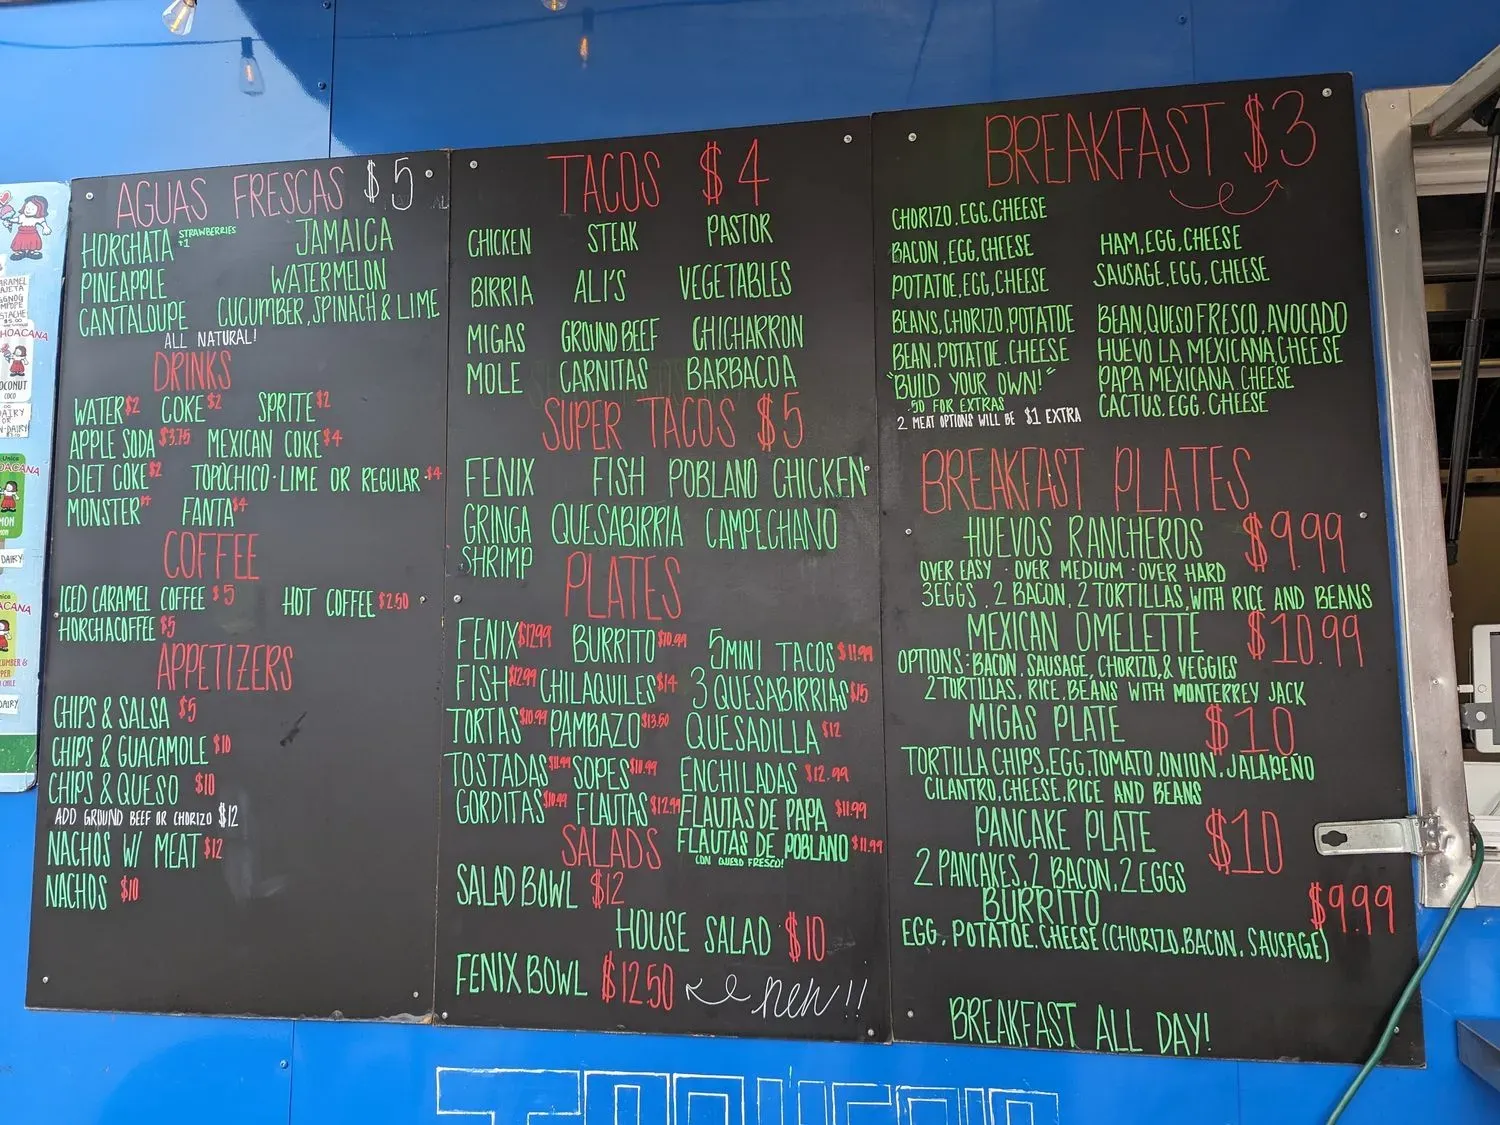 AGUAS FRESCAS $5
HORCHATA STRAWBERRIES +1 JAMAICA
PINEAPPLE WATERMELON
CANTALOUPE CUCUMBER, SPINACH & LIME
ALL NATURAL!
DRINKS
WATER $2 COKE $2 SPRITE $2
APPLE SODA $3.75 MEXICAN COKE $4
DIET COKE $2 TOPOCHICO·LIME OR REGULAR·$4
MONSTER $4 FANTA $4
COFFEE
ICED CARAMEL COFFEE $5 HOT COFFEE $2.50
HORCHACOFFEE $5
APPETIZERS
CHIPS & SALSA $5
CHIPS & GUACAMOLE $10
CHIPS & QUESO $10
ADD GROUND BEEF OR CHORIZO $12
NACHOS W/ MEAT $12
NACHOS $10
TACOS $4
CHICKEN STEAK PASTOR
BIRRIA ALI'S VEGETABLES
MIGAS GROUND BEEF CHICHARRON
MOLE CARNITAS BARBACOA
SUPER TACOS $5
FENIX FISH POBLANO CHICKEN
GRINGA QUESABIRRIA CAMPECHANO
SHRIMP
PLATES
FENIX $12.99 BURRITO $10.99 5 MINI TACOS $11.99
FISH $12.99 CHILAQUILES $14 3 QUESABIRRIAS $15
TORTAS $10.99 PAMBAZO $13.50 QUESADILLA $12
TOSTADAS $11.99 SOPES $10.99 ENCHILADAS $12.99
GORDITAS $10.99 FLAUTAS $12.99 FLAUTAS DE PAPA $11.99
FLAUTAS DE POBLANO $11.99
CON QUESO FRESCO!
SALADS
SALAD BOWL $12
HOUSE SALAD $10
FENIX BOWL $12.50 new!!
BREAKFAST $3
CHORIZO, EGG, CHEESE
BACON, EGG, CHEESE HAM, EGG, CHEESE
POTATOE, EGG, CHEESE SAUSAGE, EGG, CHEESE
BEANS, CHORIZO, POTATOE BEAN, QUESO FRESCO, AVOCADO
BEAN, POTATOE, CHEESE HUEVO LA MEXICANA, CHEESE
"BUILD YOUR OWN!" PAPA MEXICANA, CHEESE
.50 FOR EXTRAS CACTUS, EGG, CHEESE
2 MEAT OPTIONS WILL BE $1 EXTRA
BREAKFAST PLATES
HUEVOS RANCHEROS $9.99
OVER EASY · OVER MEDIUM · OVER HARD
3 EGGS, 2 BACON, 2 TORTILLAS, WITH RICE AND BEANS
MEXICAN OMELETTE $10.99
OPTIONS: BACON, SAUSAGE, CHORIZO, & VEGGIES
2 TORTILLAS, RICE, BEANS WITH MONTERREY JACK
MIGAS PLATE $10
TORTILLA CHIPS, EGG, TOMATO, ONION, JALAPEÑO
CILANTRO, CHEESE, RICE AND BEANS
PANCAKE PLATE $10
2 PANCAKES, 2 BACON, 2 EGGS
BURRITO $9.99
EGG, POTATOE, CHEESE (CHORIZO, BACON, SAUSAGE)
BREAKFAST ALL DAY!